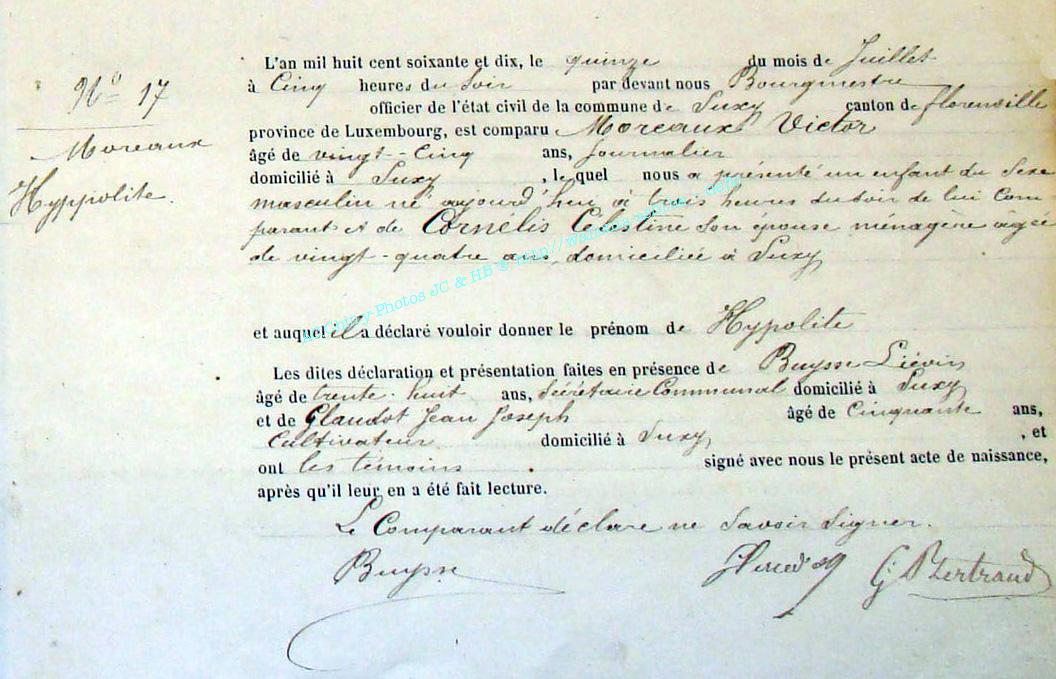 N° 17
Moreaux
Hyppolite.
L'an mil huit cent soixante et dix, le quinze du mois de Juillet
à Cinq heures du Soir par devant nous Bourgmestre
officier de l'état civil de la commune de Suxy canton de florenville
province de Luxembourg, est comparu Moreaux Victor
âgé de vingt-Cinq ans, Journalier
domicilié à Suxy, lequel nous a présenté un enfant du Sexe
masculin né aujourd'hui à trois heures du soir de lui Com
parant et de Cornélis Célestine Son épouse ménagère âgée
de vingt-quatre ans domiciliée à Suxy
et auquel il a déclaré vouloir donner le prénom de Hypolite
Les dites déclaration et présentation faites en présence de Buysse Liévin
âgé de trente-huit ans, Sécrétaire Communal domicilié à Suxy
et de Glaudot Jean Joseph âgé de Cinquante ans,
Cultivateur domicilié à Suxy, et
ont les témoins signé avec nous le présent acte de naissance,
après qu'il leur en a été fait lecture.
Le Comparant déclare ne Savoir Signer.
Buysse G. Bertrand
Photos JC & HB © http://